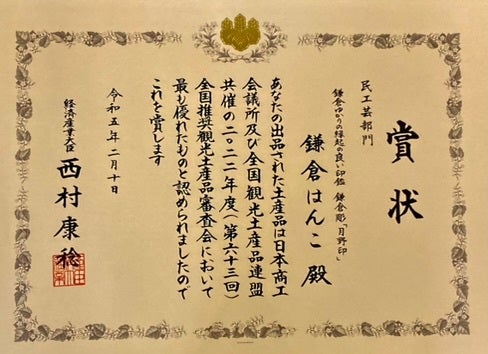 賞状
民工芸部門
鎌倉ゆかりの縁起の良い印鑑 鎌倉彫「月野印」
鎌倉はんこ 殿
あなたの出品された土産品は日本商工
会議所及び全国観光土産品連盟
共催の二〇二二年度(第六十三回)
全国推奨観光土産品審査会において
最も優れたものと認められましたので
これを賞します
令和五年二月十日
経済産業大臣 西村康稔